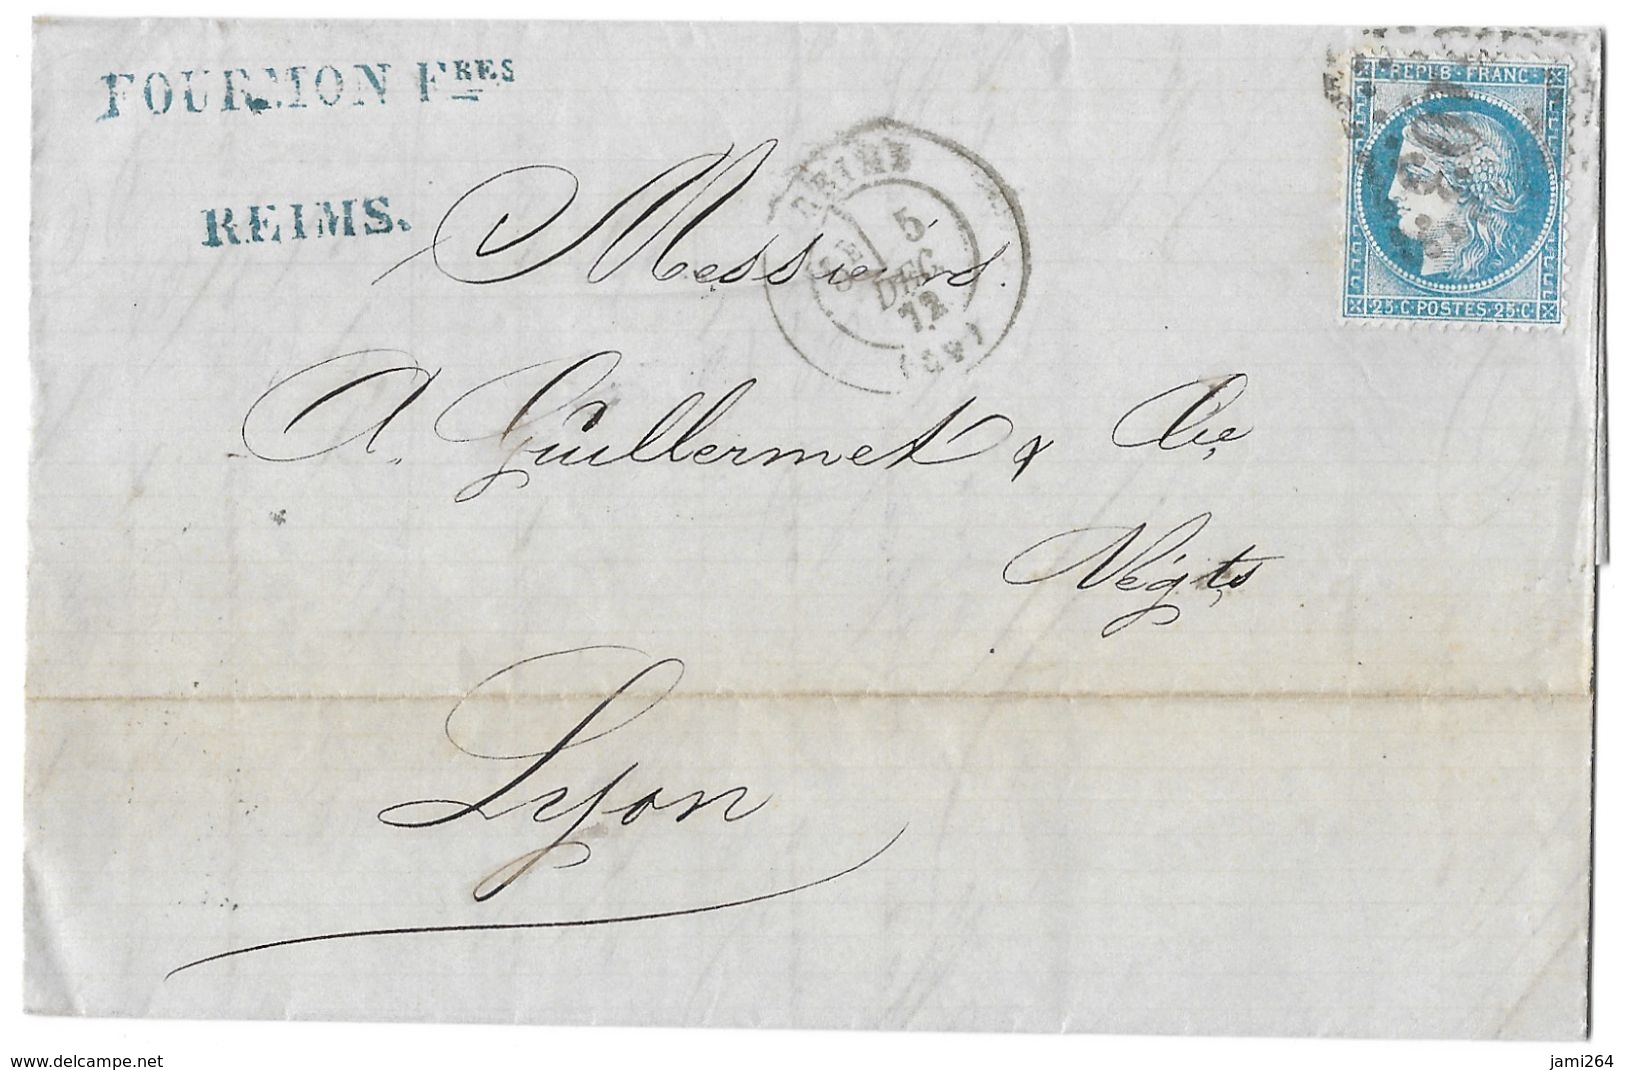 FOURMON FRES
REIMS.
REIMS
5E
5
DEC.
72
(49)
REPUB · FRANC ·
25 · C · POSTES · 25 · C
Messieurs.
A. Guillermet & Cie,
Négts
Lyon
www.delcampe.net
jami264